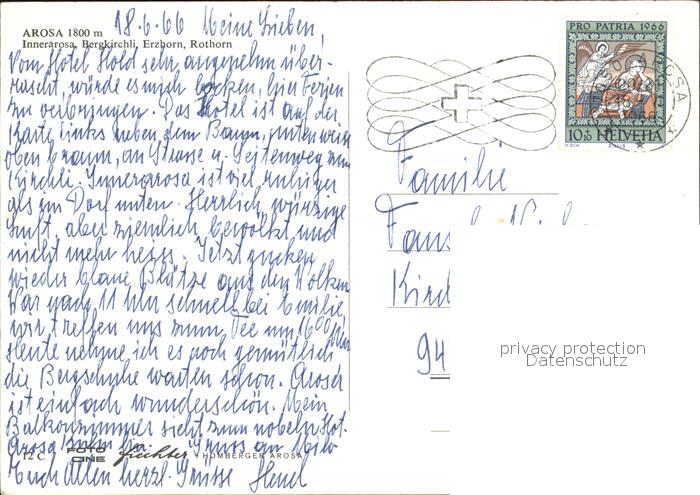 18.6.66 Meine Lieben,
AROSA 1800 m
Innerarosa, Bergkirchli, Erzhorn, Rothorn
Vom Hotel Hold sehr angenehm über-
rascht, würde es mich locken, hier Ferien
zu verbringen. Das Hotel ist auf der
Karte links neben dem Baum, unten weiss
oben braun, an Strasse u. Seitenweg zum
Kirchli. Innerarosa ist viel ruhiger
als im Dorf unten. Herrlich würzige
Luft, aber ziemlich bewölkt und
nicht mehr heiss. Jetzt gucken
wieder blaue Blätze aus den Wolken
War nach 11 Uhr schnell bei Emilie,
wir treffen uns zum Tee um 16 00 Uhr
Heute nehme ich es noch gemütlich
die Bergschuhe warten schon. Arosa
ist einfach wunderschön. Mein
Balkonzimmer sieht zum nobeln Hot.
Arosa Kulm hin. Gruss an Milo
Euch Allen herzl. Grüsse
12 C FOTO CINE fechter HOMBERGER AROSA
PRO PATRIA 1966
10+5 HELVETIA
AROSA
Familie
Kird
94
privacy protection
Datenschutz